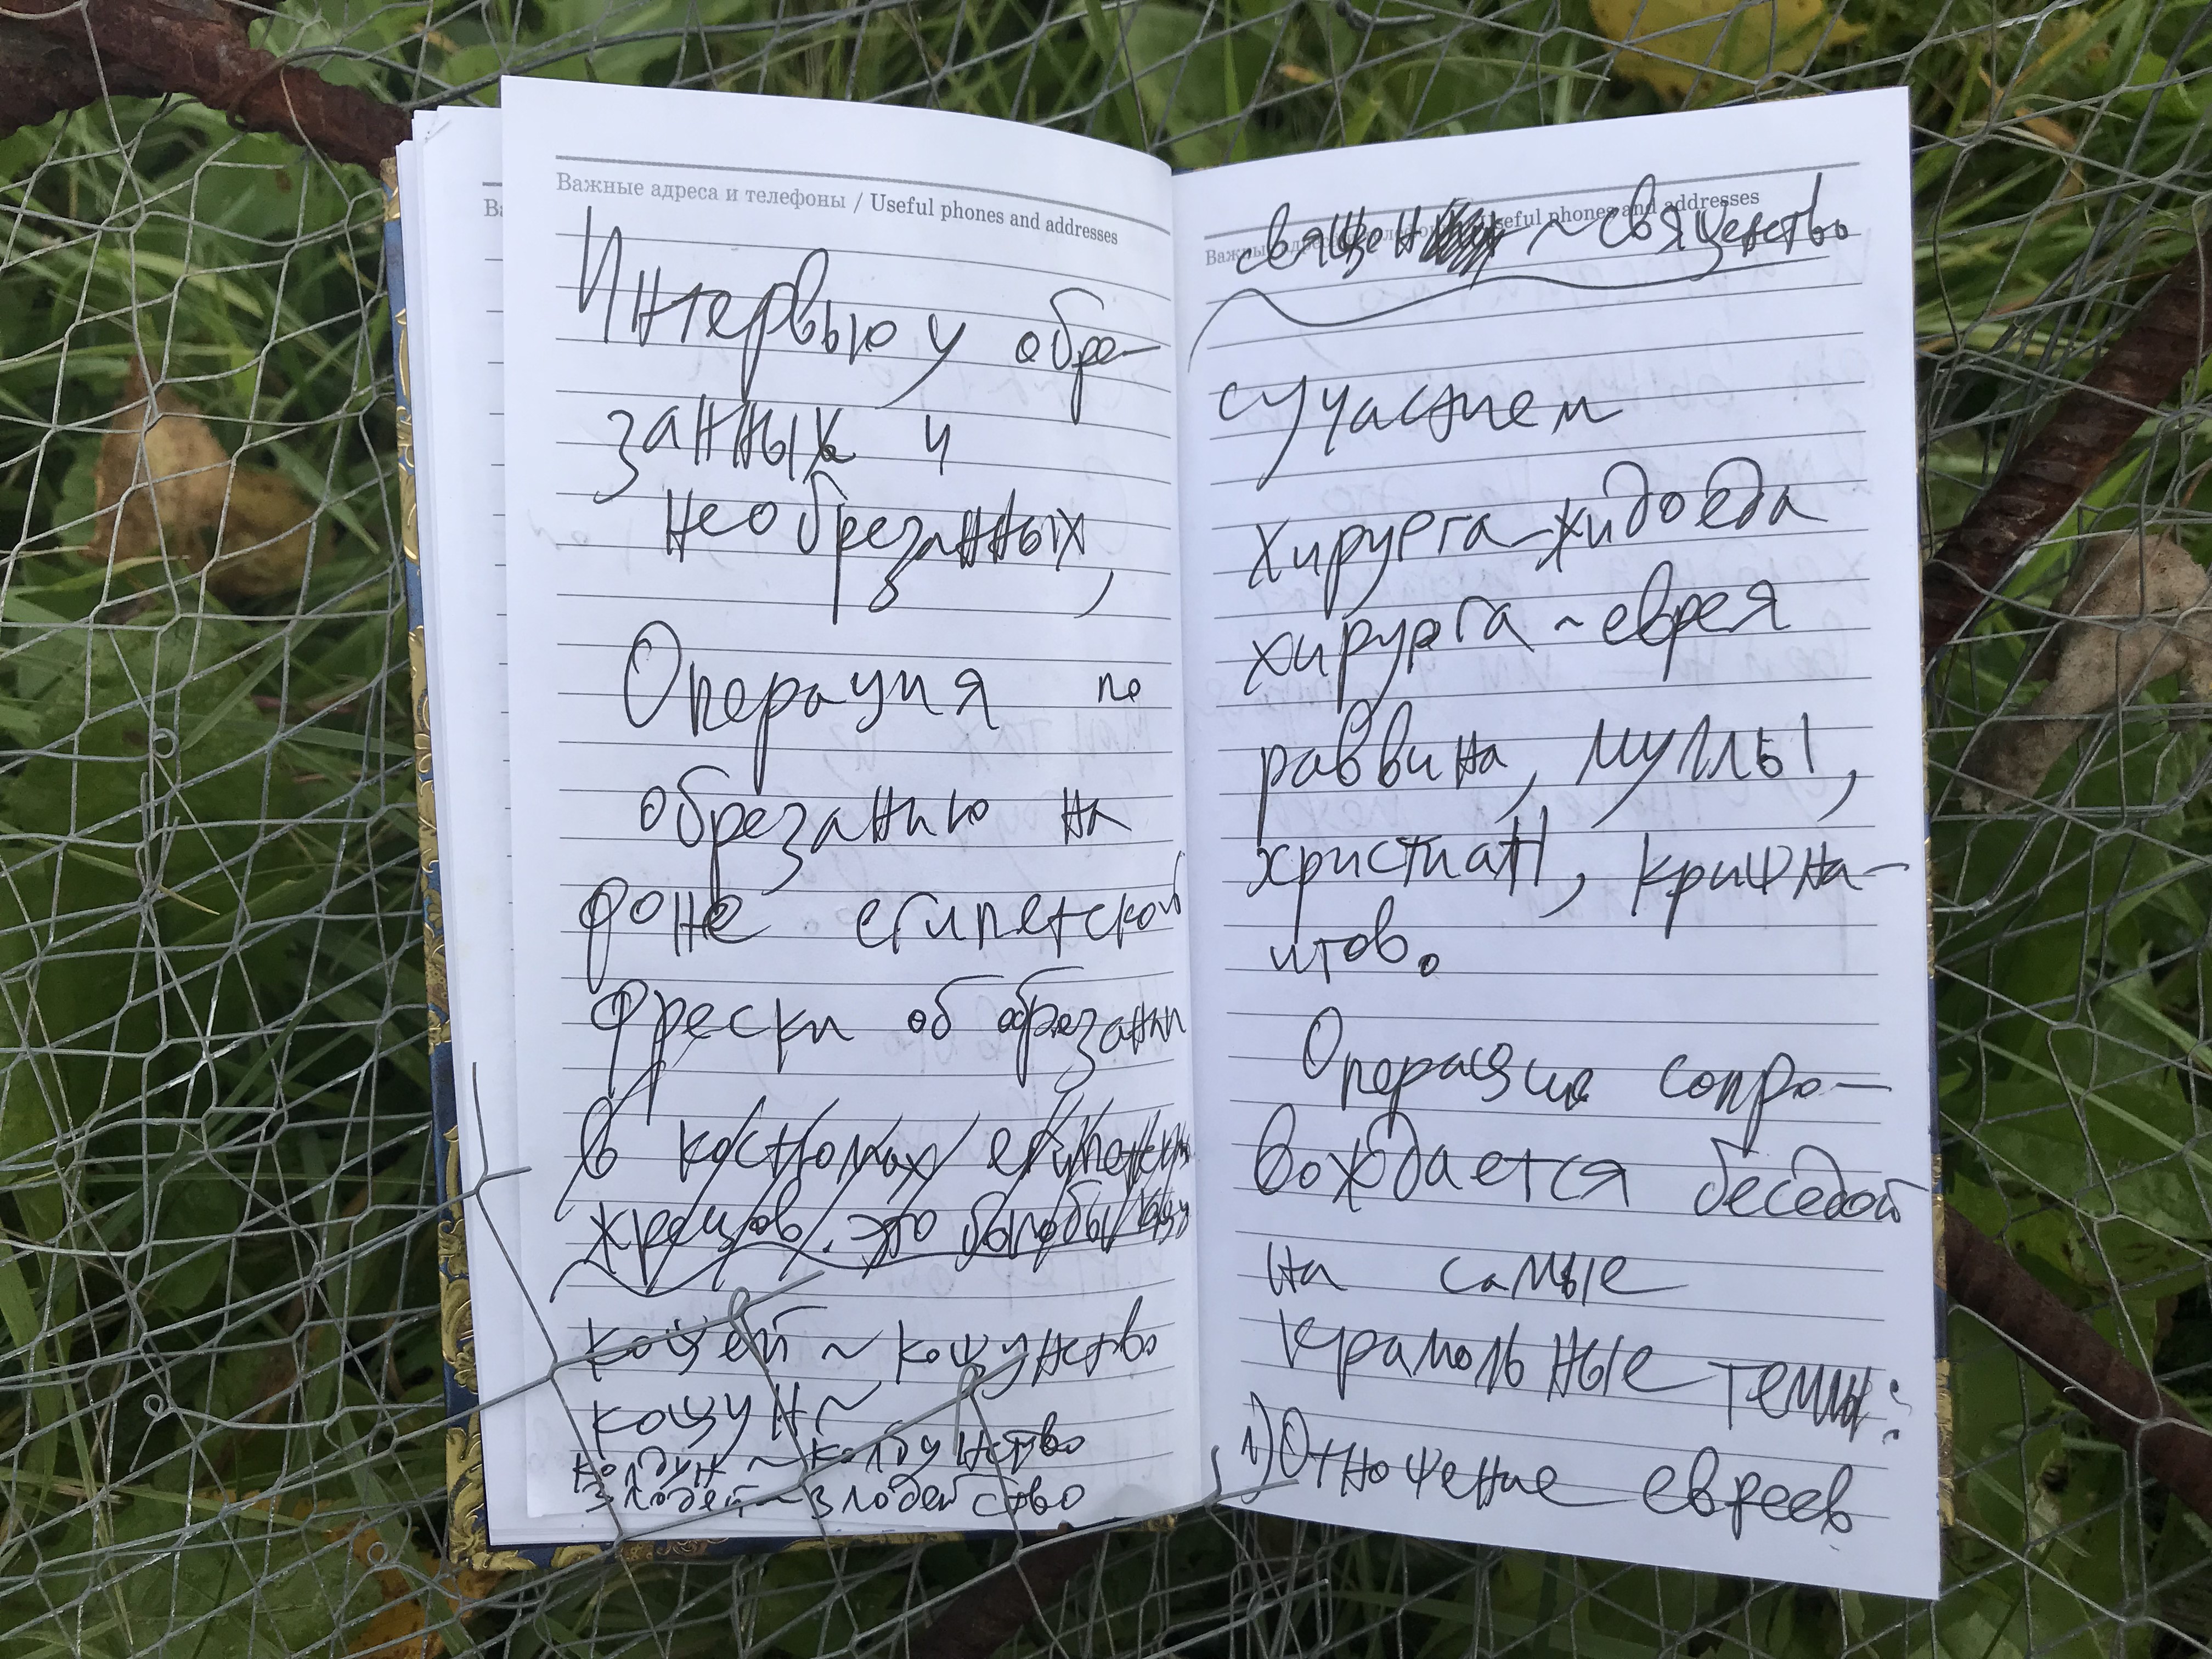 Важные адреса и телефоны / Useful phones and addresses
Интервью у обре-
занных и
необрезанных,
Операция по
обрезанию на
фоне египетской
фрески об обрезании
В костюмах египетских
жрецов. это было бы
кощей ~ кощунство
кощун ~
колдун ~ колдунство
злодей ~ злодейство
Useful phones and addresses
священ ~ священство
с участием
хирурга-жидоеда
хирурга ~ еврея
раввина, муллы,
христиан, кришна-
итов.
Операция сопро-
вождается беседой
на самые
крамольные темы:
1) Отношение евреев